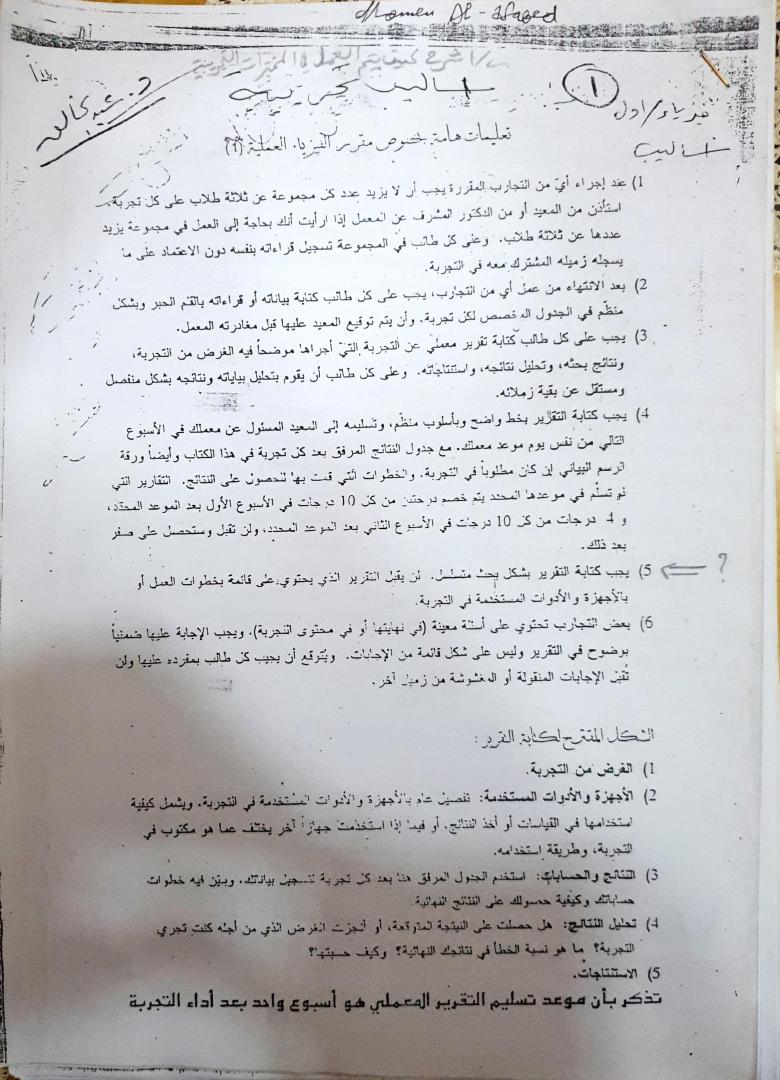 Momen Al-
س/ اشرح كيف يتم العمل في
١
فيزياء/اول
اساليب
د. عبدالخالق
اساليب تجريبية
تعليمات هامة بخصوص مقرر الفيزياء العملية (1)
1) عند إجراء أيّ من التجارب المقررة يجب أن لا يزيد عدد كل مجموعة عن ثلاثة طلاب على كل تجربة.
استأذن من المعيد أو من الدكتور المشرف عن المعمل إذا ارأيت أنك بحاجة إلى العمل في مجموعة يزيد
عددها عن ثلاثة طلاب. وعلى كل طالب في المجموعة تسجيل قراءاته بنفسه دون الاعتماد على ما
يسجله زميله المشترك معه في التجربة.
2) بعد الانتهاء من عمل أي من التجارب، يجب على كل طالب كتابة بياناته أو قراءاته بالقلم الحبر وبشكل
منظّم في الجدول المخصص لكل تجربة. وأن يتم توقيع المعيد عليها قبل مغادرته المعمل.
3) يجب على كل طالب كتابة تقرير معملي عن التجربة التي أجراها موضحاً فيه الغرض من التجربة،
ونتائج بحثه، وتحليل نتائجه، واستنتاجاته. وعلى كل طالب أن يقوم بتحليل بياناته ونتائجه بشكل منفصل
ومستقل عن بقية زملائه.
4) يجب كتابة التقرير بخط واضح وبأسلوب منظّم، وتسليمه إلى المعيد المسئول عن معملك في الأسبوع
التالي من نفس يوم موعد معملك. مع جدول النتائج المرفق بعد كل تجربة في هذا الكتاب وأيضاً ورقة
الرسم البياني إن كان مطلوباً في التجربة. والخطوات التي قمت بها للحصول على النتائج. التقارير التي
لم تسلّم في موعدها المحدد يتم خصم درجتين من كل 10 درجات في الأسبوع الأول بعد الموعد المحدّد،
و 4 درجات من كل 10 درجات في الأسبوع الثاني بعد الموعد المحدد، ولن تقبل وستحصل على صفر
بعد ذلك.
5) يجب كتابة التقرير بشكل بحث متسلسل. لن يقبل التقرير الذي يحتوي على قائمة بخطوات العمل أو
بالأجهزة والأدوات المستخدمة في التجربة.
؟
6) بعض التجارب تحتوي على أسئلة معينة (في نهايتها أو في محتوى التجربة). ويجب الإجابة عليها ضمنياً
بوضوح في التقرير وليس على شكل قائمة من الإجابات. ويُتوقع أن يجيب كل طالب بمفرده عليها ولن
تُقبل الإجابات المنقولة أو المغشوشة من زميل آخر.
الشكل المقترح لكتابة التقرير:
1) الغرض من التجربة.
2) الأجهزة والأدوات المستخدمة: تفصيل عام بالأجهزة والأدوات المستخدمة في التجربة. ويشمل كيفية
استخدامها في القياسات أو أخذ النتائج. أو فيما إذا استخدمت جهازاً آخر يختلف عما هو مكتوب في
التجربة، وطريقة استخدامه.
3) النتائج والحسابات: استخدم الجدول المرفق هنا بعد كل تجربة لتسجيل بياناتك. وبيّن فيه خطوات
حساباتك وكيفية حصولك على النتائج النهائية.
4) تحليل النتائج: هل حصلت على النتيجة المتوقعة، أو أنجزت الغرض الذي من أجله كنت تجري
التجربة؟ ما هو نسبة الخطأ في نتائجك النهائية؟ وكيف حسبتها؟
5) الاستنتاجات.
تذكر بأن موعد تسليم التقرير المعملي هو أسبوع واحد بعد أداء التجربة